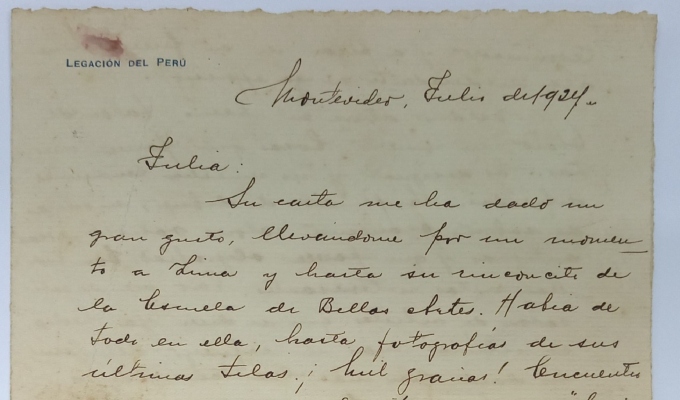 LEGACIÓN DEL PERÚ
Montevideo, Julio de 1924.
Julia:
Su carta me ha dado un
gran gusto, llevándome por un momen_
to a Lima y hasta su rinconcito de
la Escuela de Bellas Artes. Había de
todo en ella, hasta fotografías de sus
últimas telas. ¡Mil gracias! Encuentro